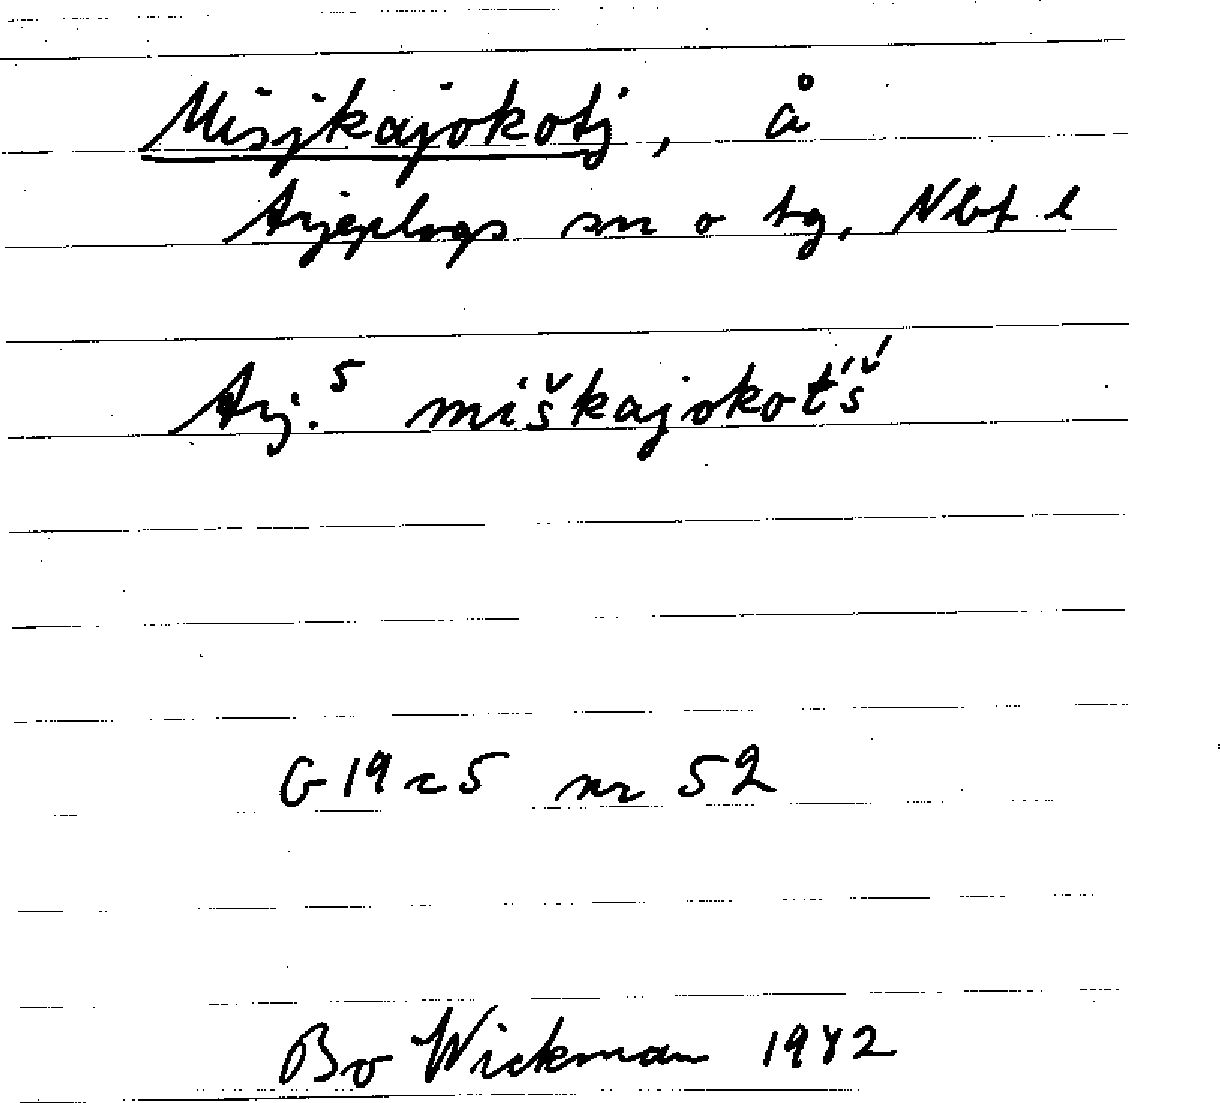 Misjkajokotj, å
Arjeplogs sn o tg, Nbt l
Arj.⁵ miškajokot́š́
G 19 c 5 nr 52
Bo Wickman 1982